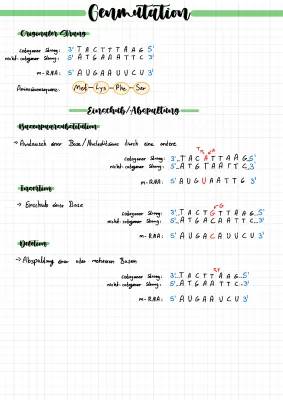 Genmutation
Originaler Strang
codogener Strang: 3' T A C T T T A A G 5'
nicht-codogener Strang: 5' A T G A A A T T C 3'
m-RNA: 5' A U G A A U U C U 3'
Aminosäuresequenz: Met-Lys-Phe-Ser
Einschub/Abspaltung
Basenpaarsubstitution
→ Austausch einer Base/Nucleotidsequenz durch eine andere
codogener Strang: 3'...T A C A T T A A G...5'
nicht-codogener Strang: 5'...A T G T A A T T C...3'
m-RNA: 5' A U G U A A T T G 3'
Insertion
→ Einschub einer Base
codogener Strang: 3'...T A C T G T T A A G...5'
nicht-codogener Strang: 5'...A T G A C A A T T C...3'
m-RNA: 5' A U G A C A U U C U 3'
Deletion
→ Abspaltung einer oder mehreren Basen
codogener Strang: 3'...T A C T T A A G...5'
nicht-codogener Strang: 5'...A T G A A T T C...3'
m-RNA: 5' A U G A A U C U 3'